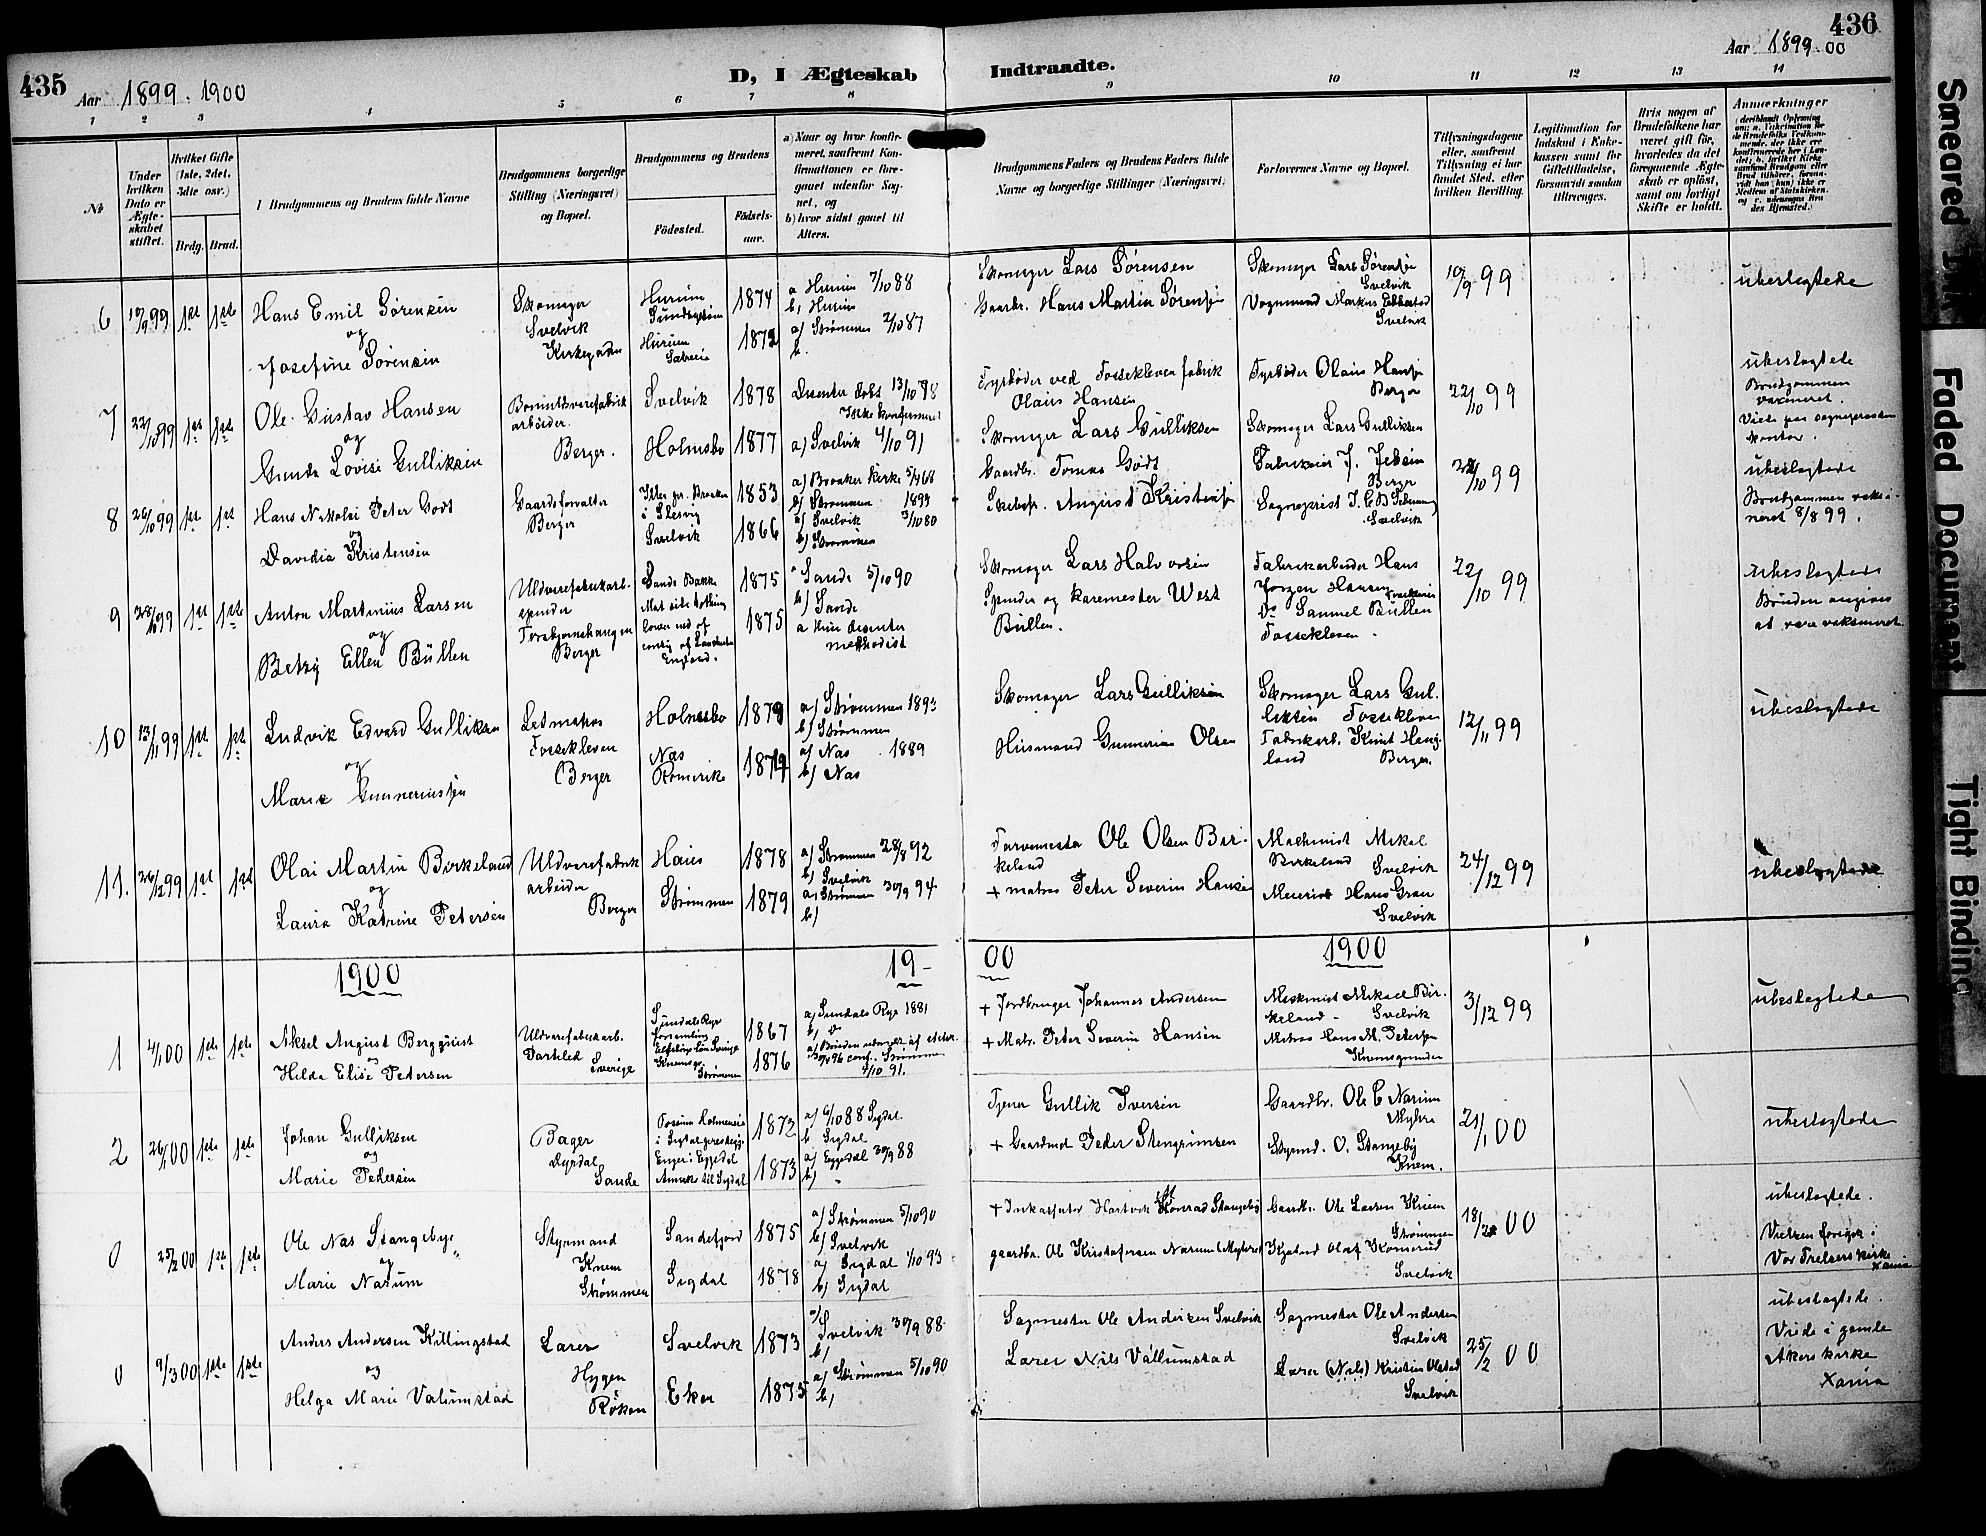 435
Aar 1899. 1900
D, I Ægteskab
Indtraadte.
Aar 1899.00
436
1 2 3 4 5 6 7 8 9 10 11 12 13 14
No
Under hvilken Dato er Ægteskabet stiftet.
Hvilket Gifte (1ste, 2det, 3die osv.)
Brdg. Brud.
Brudgommens og Brudens fulde Navne
Brudgommens borgerlige Stilling (Næringsvei) og Bopæl.
Brudgommens og Brudens
Födested.
Födselsaar.
a) Naar og hvor konfirmeret, samfremt Konfirmationen er foregaaet udenfor Sognet, og
b) hvor sidst gaaet til Alters.
Brudgommens Faders og Brudens Faders fulde Navne og borgerlige Stillinger (Næringsvei)
Forlovernes Navne og Bopæl.
Tillysningsdagene eller, samfremt Tillysning ei har fundet Sted, efter hvilken Bevilling.
Legitimation for Indskud i Enkekassen samt for Giftetilladelse, forsaavidt saadan tiltrænges.
Hvis nogen af Brudefolkene har været gift før, hvorledes da det foregaaende Ægteskab er opløst, samt om lovligt Skifte er holdt.
Anmærkninger
6 10/9 99 1st 1ste
Hans Emil Sörensen
og
Josefine Sörensen
Skomager
Svelvik
Kirkegaden
Hurum
1874
Hurum
1872
a Hurum 7/10 88
b, Hurum
a) Strømmen 2/10 87
b.
Skomager Lars Sörensen
Gaardbr. Hans Martin Sörensen
Skomager Lars Sörensen
Svelvik
Vognmand Markus Ebbestad
Svelvik
10/9 99
ubeslegtede
7 22/10 99 1st 1ste
Ole Gustav Hansen
og
Gunda Lovise Gulliksen
arbeider.
Berger.
Svelvik 1878
Holmsbo 1877
Dissenter døbt 13/10 78
Ikke konfirmeret
a) Svelvik 4/10 91
Fyrbøder ved Fossekleven fabrik
Olaus Hansen
Skomager Lars Gulliksen
Fyrbøder Olaus Hansen
Berger
Skomager Lars Gulliksen
22/10 99
ubeslegtede
Brudgommen
vaxineret.
Viede paa sogneprestens
kontor.
8 26/10 99 1st 1st
Hans Nikolai Peter Godt
og
Davidia Kristensen
Gaardsforvalter
Berger
i Slesvig
1853
Svelvik 1866
a) Broaker Kirke
b) Strømmen 1899
a) Svelvik 3/10 80
b) Strømmen
Gaardbr. Tomas Godt
Skibsf. August Kristensen
Fabrikeier J. Jebsen
Berger
Sogneprest
Svelvik
22/10 99
ubeslegtede
Brudgommen vaksineret 8/8 99.
9 28/10 99 1st 1ste
Anton Martinius Larsen
og
Betsy Ellen Büllen
Uldvarefabrikarb.
spinder
Berger
Sande Bakke
1875
England.
1875
a Sande 5/10 90
b) Sande
a Hun dissenter
methodist
Skomager Lars Halvorsen
Spinder og karemester West
Büllen.
Fabrikarbeider Hans
Jorgen Hansen
Do Samuel Büllen
Fossekleven.
22/10 99
ubeslegtede
Bruden angives
at være vaksineret.
10 13/11 99 1st 1st
Ludvik Edvard Gulliksen
og
Marie Gunneriusen
Letmatros
Fossekleven
Berger
Holmsbo 1879
Nas
Romerike 1874
a) Strømmen 1893
b) Strømmen
a) Nas 1889
b) Nas
Skomager Lars Gulliksen
Husmand Gunnerius Olsen
Skomager Lars Gulliksen Fossekleven
Fabrikarb. Knut Haugland Berger.
12/11 99
ubeslegtede
11. 26/12 99 1st 1st
Olai Martin Birkeland
og
Laura Katrine Petersen
Uldvarefabrik
arbeider
Berger
1878
Strømmen 1879
a) Strømmen 28/8 92
b) Svelvik
a) Strømmen 30/9 94
b)
Farvemester Ole Olsen Birkeland
+ matros Peter Severin Hansen
Maskinist Mikal
Birkeland Svelvik
Hans Grau
Svelvik
24/12 99
ubeslegtede
1900
19-
00
1900
1 4/1 00 1ste 1ste
Aksel August Bergquist
Hilda Elise Petersen
Uldvarefabrikarb.
Sverige
Sundals Ryr
forsamling
1867
Strømmen 1876
a) Sundals Ryr 1881
Strømmen
4/10 91.
+ Jordbruger Johannes Andersen
+ Matr. Peter Severin Hansen
Maskinist Mikael Birkeland - Svelvik
Matros Hans M. Petersen
3/12 99
ubeslegtede
2 26/1 00 1ste 1ste
Johan Gulliksen
og
Marie Pedersen
Bager
Sande
1872
Anneks til Sigdal 1873
a) 9/10 88 Sigdal.
b Sigdal
a) Eggedal 30/9 88
b) "
Tjener Gullik Iversen
+ Gaardmd Peder Stengrimsen
Gaardbr. Ole C Narum
Myhre
Styrmd. O. Stangeby
Knem.
21/1 00
ubeslegtede
0 25/2 00 1ste 1ste
Ole Nas Stangebye
og
Marie Narum
Styrmand
Knem
Strømmen
Sandefjord 1875
Sigdal 1878
a) Strømmen 5/10 90
b) Svelvik
a) Sigdal 1/10 93
b) Sigdal
+ Inkassator Hartvik Konrad Stangeby
gaardbr. Ole Kristofersen Narum (Myhre)
Gaardbr. Ole Larsen Knem
Strømmen
Olaf Komerud
Svelvik
18/2 00
ubeslegtede.
Vielsen foregik i
Vor Frelsers kirke
Xania
0 9/3 00 1ste 1ste
Anders Andersen Killingstad
og
Helga Marie Vallumstad
Lærer
Hygen
Røken
Svelvik 1873
Eker 1875
a) Svelvik 30/9 88
b)
a) Strømmen 5/10 90
b)
Sagmester Ole Andersen Svelvik
Lærer Nils Vallumstad
Sagmester Ole Andersen
Svelvik
Lærer (Nils) Kristian Olstad
Svelvik
25/2 00
ubeslegtede.
Viede i gamle
Akers kirke
Xania
Smeared Ink
Faded Document
Tight Binding